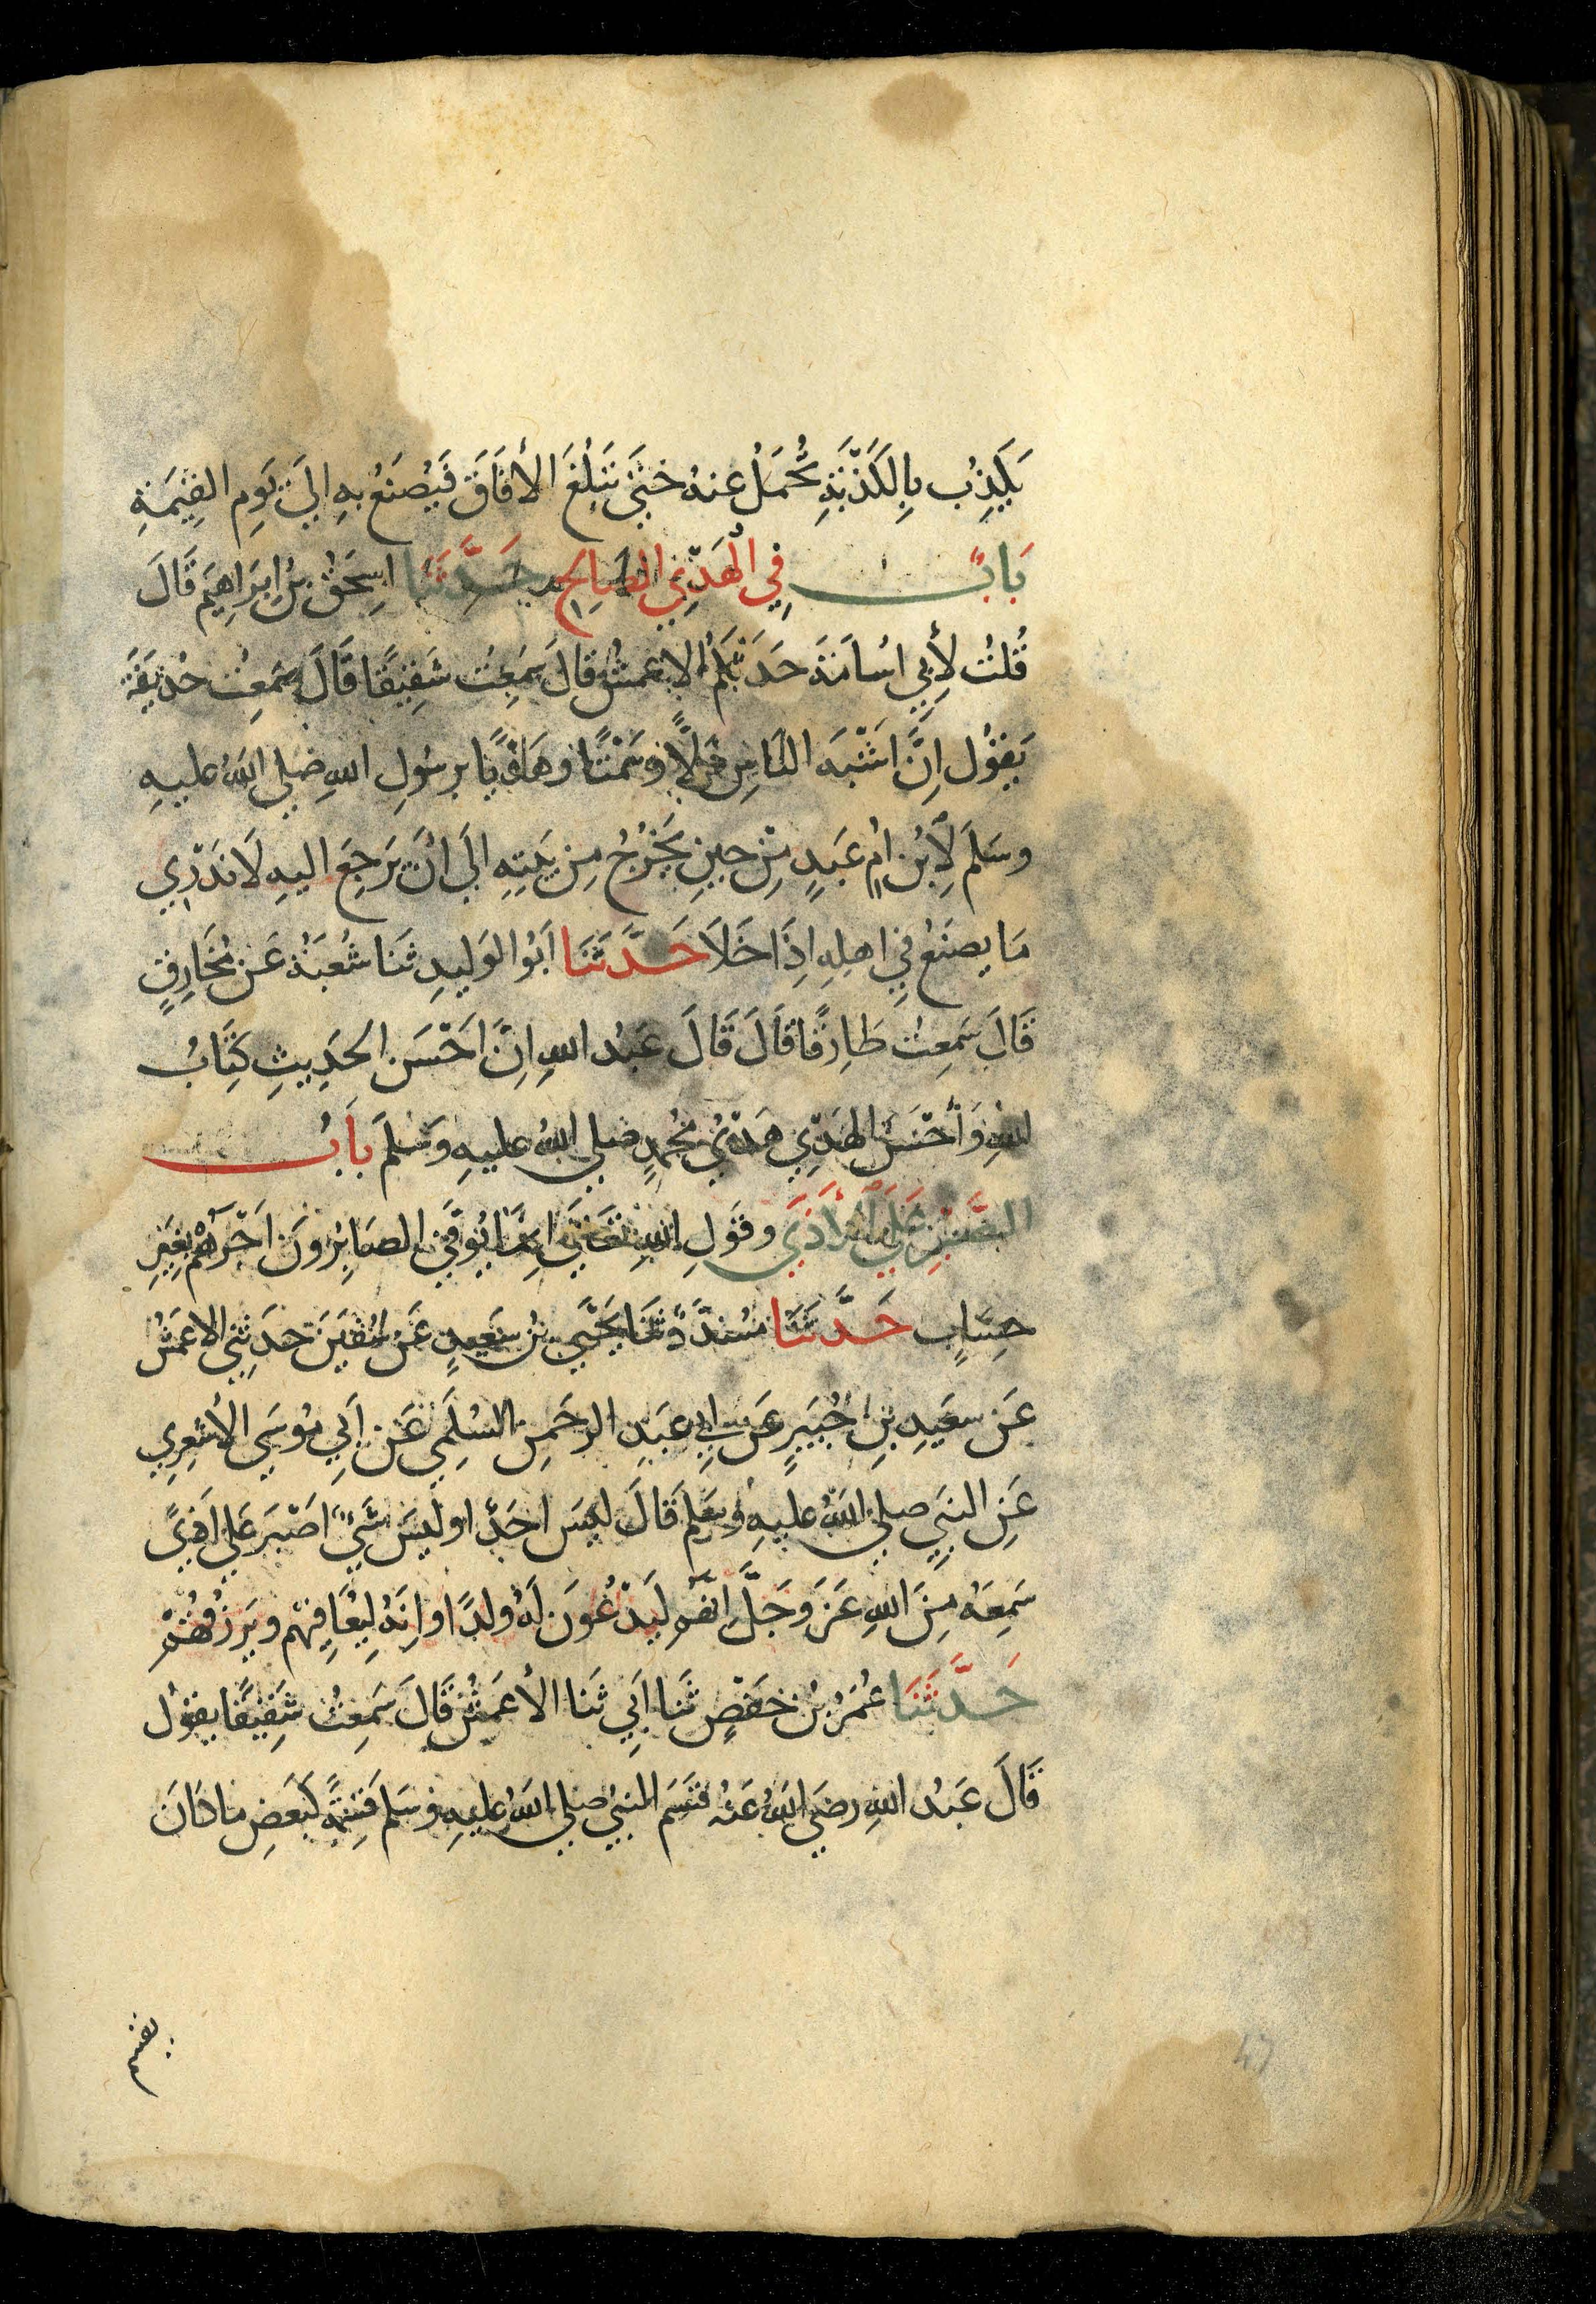 يَكْذِبُ بِالْكَذْبَةِ تُحْمَلُ عنهُ حَتَّى تَبْلُغَ الأفَاقَ فَيُصْنَعُ بهِ إلَى يَوْمِ القِيَمَةِ
بَابٌ فِي الْهَدْيِ الصَّالِحِ حَدَّثَنَا اسْحَقُ بنُ ابرَاهِيمَ قَالَ
قُلتُ لِأَبِي اسُامَةَ حَدَثَكُمُ الاعمشُ قَالَ سَمِعتُ شَقِيقًا قَالَ سَمِعتُ حُذيفَةَ
يَقوُل اِنَّ اَشْبَهَ النَاسِ دَلًّا وَسَمْتًا وهَدْيًا برسُولِ اللهِ صلي اللهُ عليهِ
وسَلمَ لَابْنُ امِ عَبدٍ مِنْ حينِ يَخرُجُ مِن بَيتِهِ الَى انَ يَرجعَ اليهِ لَا نَدْرِي
مَا يصنَعُ فِي اهلِهِ اِذَا خَلَا حَدَّثَنَا ابَوُ الوَليدِ ثَنا شُعبَةُ عَن مُخَارِقٍ
قَالَ سَمِعتُ طَارِقًا قَالَ قَالَ عَبدُ اللهِ اِنَّ اَحْسَن الحَدِيثِ كِتَابُ
اللهِ وَأَحْسَنَ الهَدْيِ هَدْيُ مُحُمدٍ صلي اللهُ عليهِ وَسَلمَ بَابُ
الصَّبْرِ عَلَي الْأَذَي وقَولِ اللهِ تعَالَى اِنمَا يُوَفَّى الصَابِرُونَ اَجْرَهُمْ بغَيرِ
حِسَابٍ حَدَّثَنَا مُسَدَّدٌ ثَنَا يَحْيَى بنُ سَعيدٍ عَن سُفْيَنَ حَدَثَنِي الاعمَشُ
عَن سعَيدِ بنِ جُبَيرٍ عَن ابِي عَبدِ الرحَمنِ السُلَمِي عَن اَبِي مُوسَي الأشعرِي
عَنِ النبَيِ صلي اللهُ عليهِ وسَلمَ قَالَ ليسَ احَدٌ او ليَسَ شَيْءٌ اَصْبَرَ عَلَي اَذًي
سَمِعَهُ مِنَ اللهِ عَزَ وجَلَّ اِنَّهُمْ لَيَدْعُونَ لَهُ ولدًا وانِهُ لِيُعَافِيْهم ويَرزُقُهُمْ
حَدَّثَنَا عُمَرُ بنُ حَفْصٍ ثَنا اَبِي ثَنا الأعمَشُ قَالَ سَمِعتُ شَقِيقًا يقوُل
قَالَ عَبدُ اللهِ رضَي اللهُ عَنهُ قسَمَ النبيُ صلي اللهُ عليهِ وسَلم قِسمةً كَبعضِ مَا كَانَ
يقسم